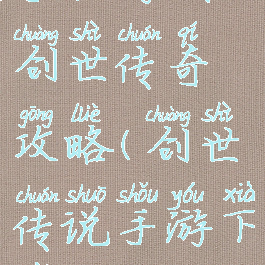 chuàng shì chuán qí
创世传奇
gōng lüè chuàng shì
攻略(创世
chuán shuō shǒu yóu xià
传说手游下